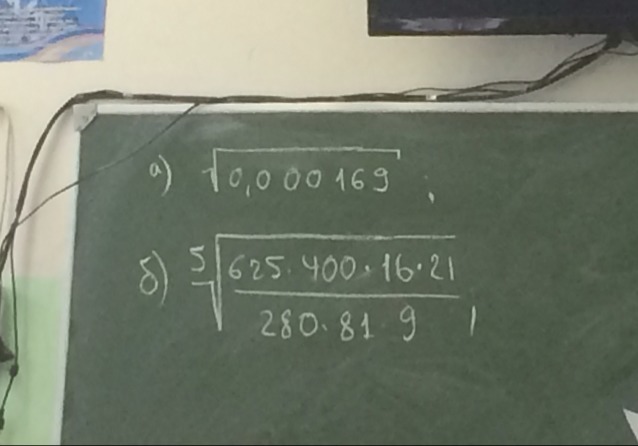 а) √0,000169 ;
б) ⁵√(625·400·16·21 / 280·81·9) ,